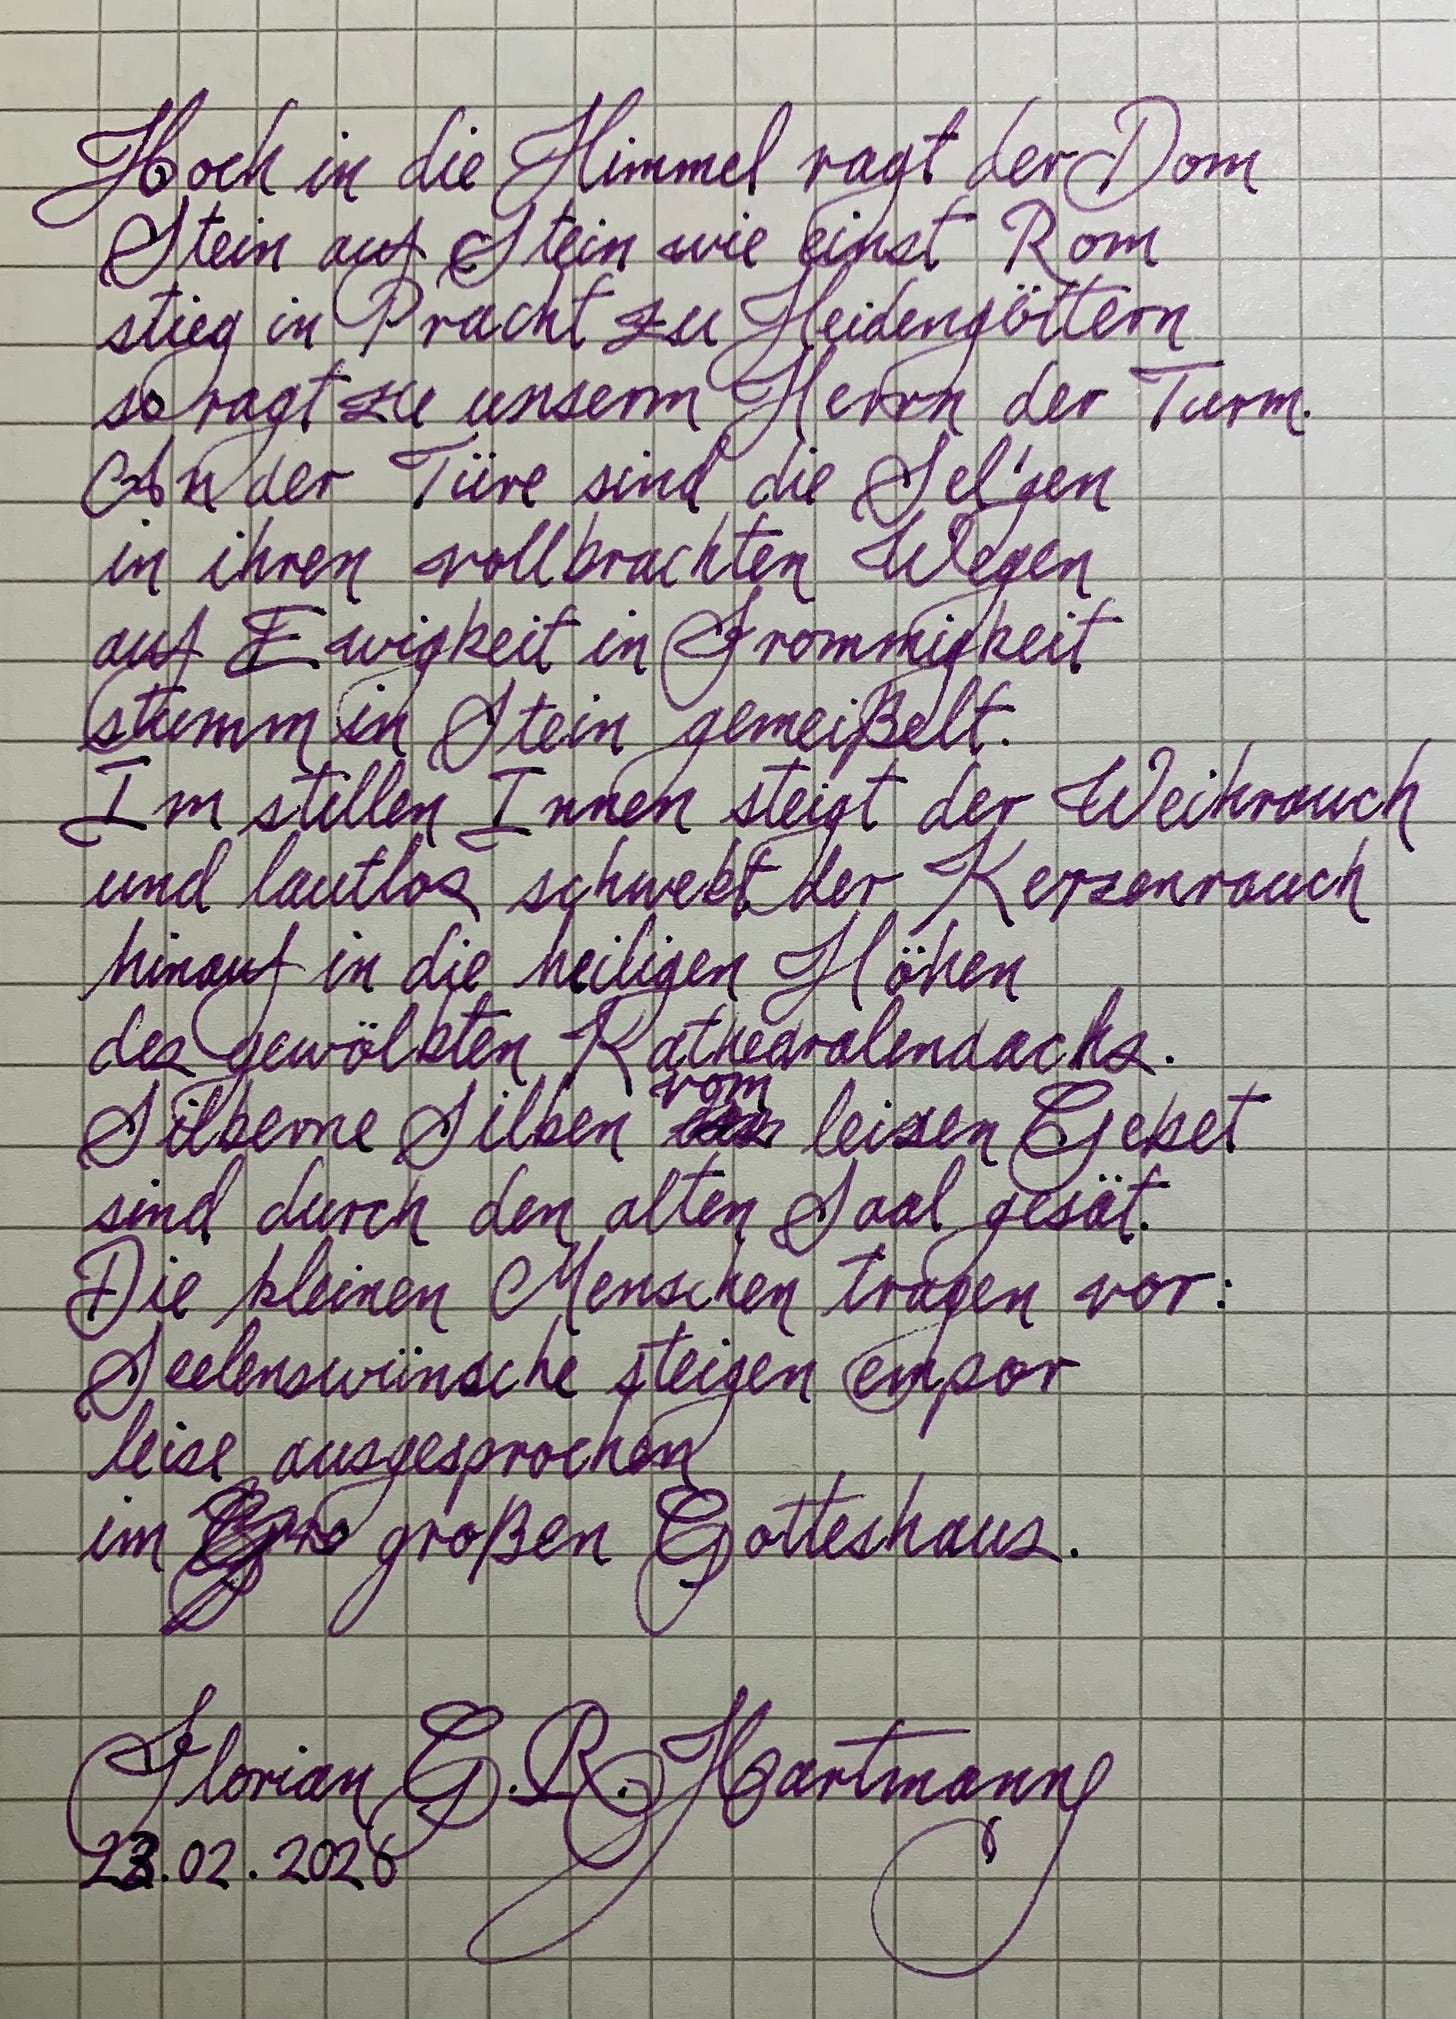 Hoch in die Himmel ragt der Dom
Stein auf Stein wie einst Rom
stieg in Pracht zu Heidengöttern
so ragt zu unserm Herrn der Turm.
An der Türe sind die Sel'gen
in ihren vollbrachten Wegen
auf Ewigkeit in Frommigkeit
stumm in Stein gemeißelt.
Im stillen Innen steigt der Weihrauch
und lautlos schwebt der Kerzenrauch
hinauf in die heiligen Höhen
des gewölbten Kathedralendachs.
Silberne Silben vom leisen Gebet
sind durch den alten Saal gesät.
Die kleinen Menschen tragen vor:
Seelenswünsche steigen empor
leise ausgesprochen
im großen Gotteshaus.
Florian G. R. Hartmann
23.02.2026